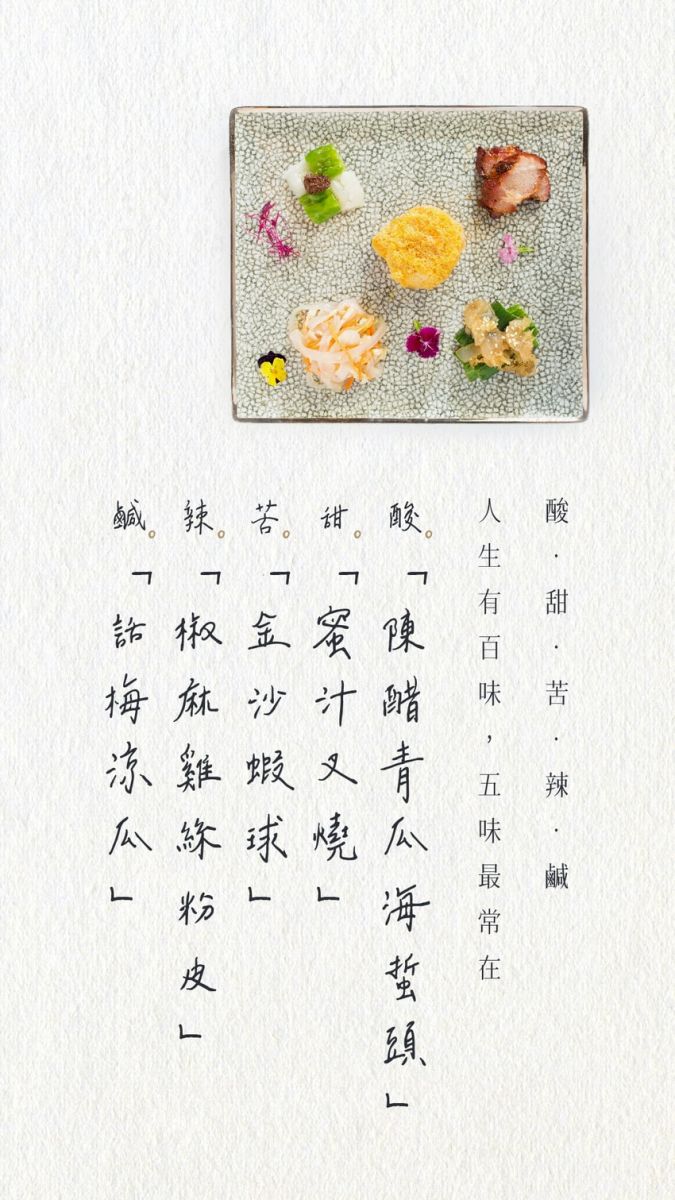 酸．甜．苦．辣．鹹
人生有百味，五味最常在
酸。「陳醋青瓜海蜇頭」
甜。「蜜汁叉燒」
苦。「金沙蝦球」
辣。「椒麻雞絲粉皮」
鹹。「話梅涼瓜」